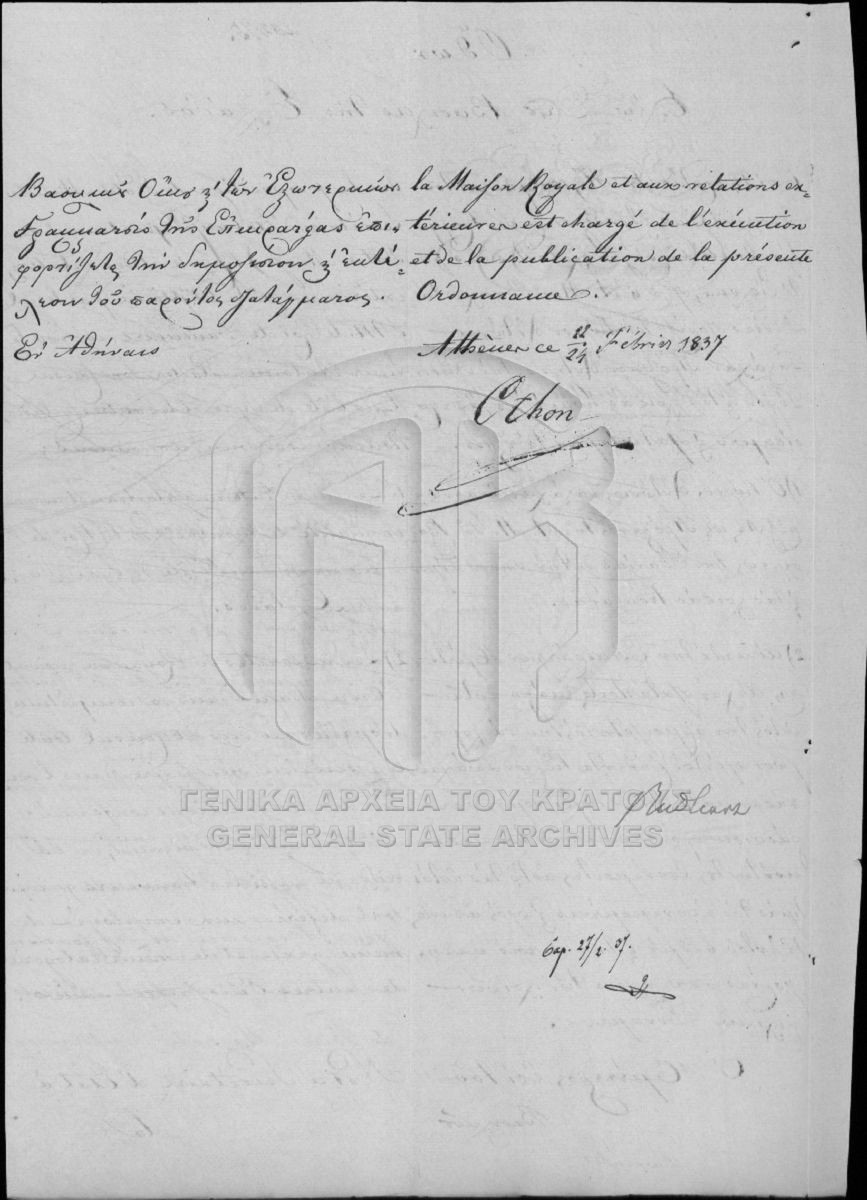 Βασιλικοῦ Οἴκου κ' τῶν Ἐξωτερικῶν
Γραμματεὺς τῆς Ἐπικρατείας ἐπι-
φορτίζεται τὴν δημοσίευσιν κ' ἐκτέ-
λεσιν τοῦ παρόντος Διατάγματος.
Ἐν Ἀθήναις
la Maison Royale et aux relations ex-
térieures est chargé de l'exécution
et de la publication de la présente
Ordonnance.
Athènes ce 12/24 Février 1837
Othon
Rudhart
27/2. 37.
ΓΕΝΙΚΑ ΑΡΧΕΙΑ ΤΟΥ ΚΡΑΤΟΥΣ
GENERAL STATE ARCHIVES